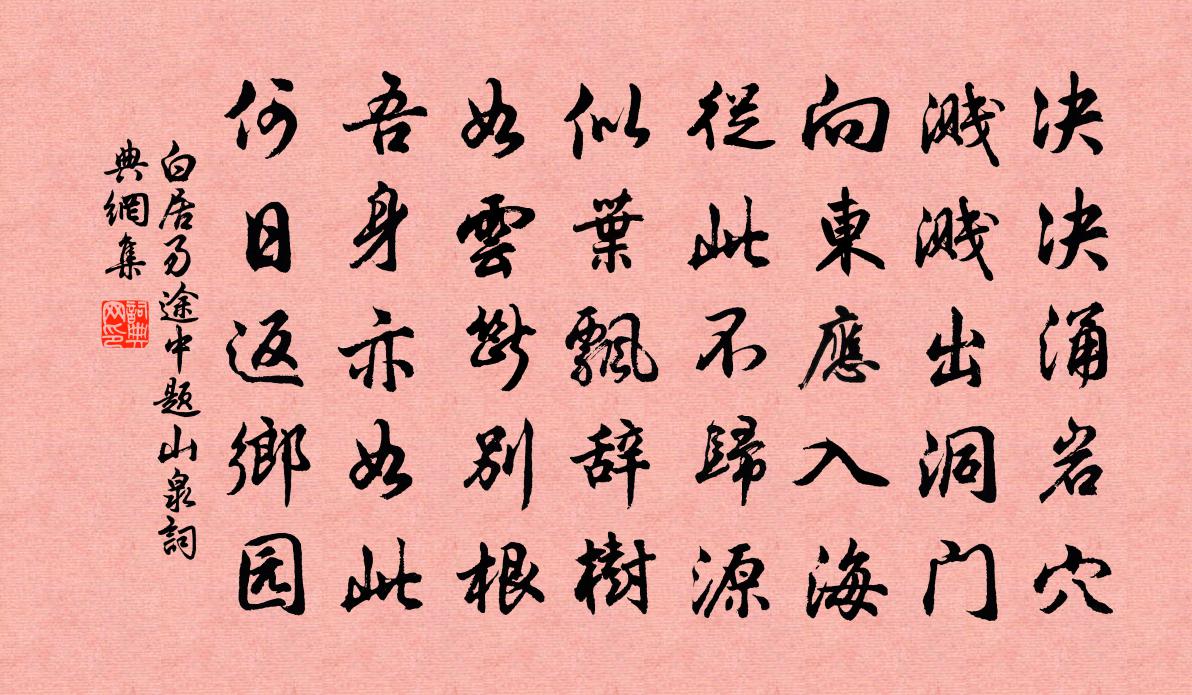 决决涌岩穴
溅溅出洞门
向東應入海
從此不歸源
似葉飄辞樹
如雲斷别根
吾身亦如此
何日返鄉园
白居易途中题山泉詞
典網集
詞典网印